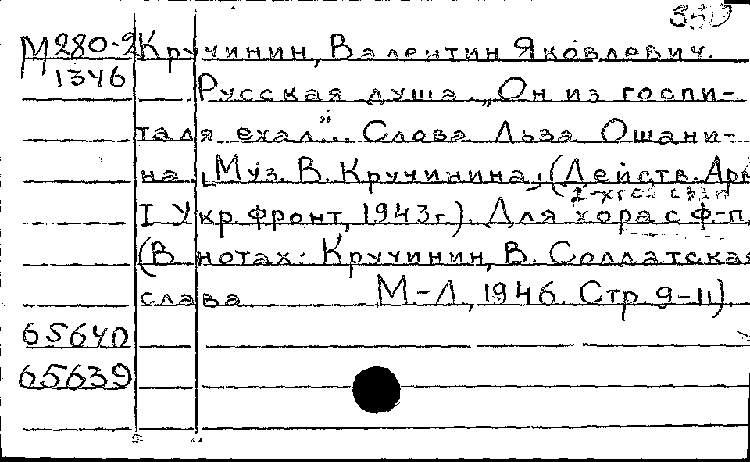 350
М280-2 Кручинин, Валентин Яковлевич.
1346 Русская душа. „Он из госпи-
таля ехал"... Слова Льва Ошани-
на. Муз. В. Кручинина, (Действ. Арм
I Укр. фронт, 1943г.). Для хора с ф-п.
(В нотах: Кручинин, В. Солдатская
слава М-Л, 1946. Стр 9-11).
65640
65639